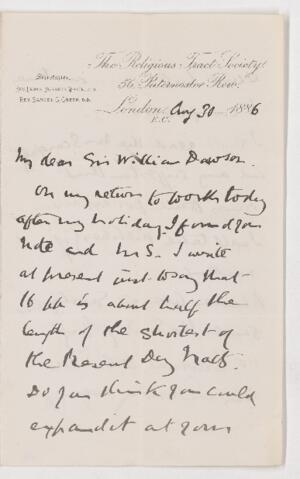 The Religious Tract Society,
56, Paternoster Row.
Secretaries.
Rev. Samuel G. Green, D.D.
London, Aug 30 1886
E.C.
My dear Sir William Dawson.
On my return to work today
after my holiday, I found your
note and M.S. I write
at present just to say that
16 pp is about half the
length of the shortest of
the Present Day Tracts.
Do you think you could
expand it at your